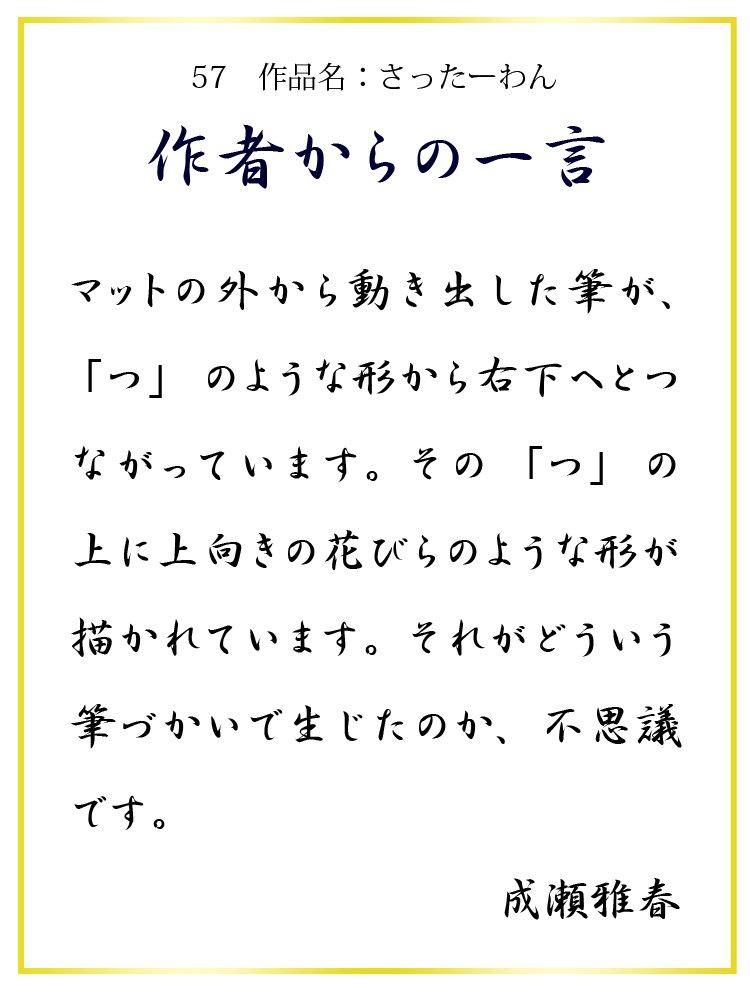 57　作品名：さったーわん
作者からの一言
マットの外から動き出した筆が、
「つ」のような形から右下へとつ
ながっています。その「つ」の
上に上向きの花びらのような形が
描かれています。それがどういう
筆づかいで生じたのか、不思議
です。
成瀬雅春